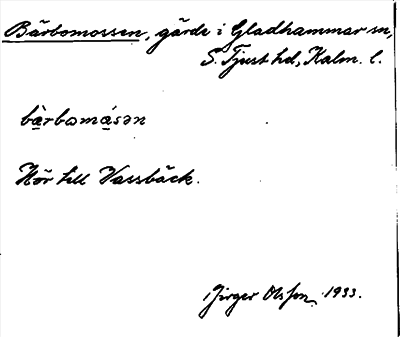 Bärbomossen, gärde i Gladhammar sn,
S. Tjust hd, Kalm. l.
bärbomåsən
Hör till Vassbäck.
Birger Olsson 1933.